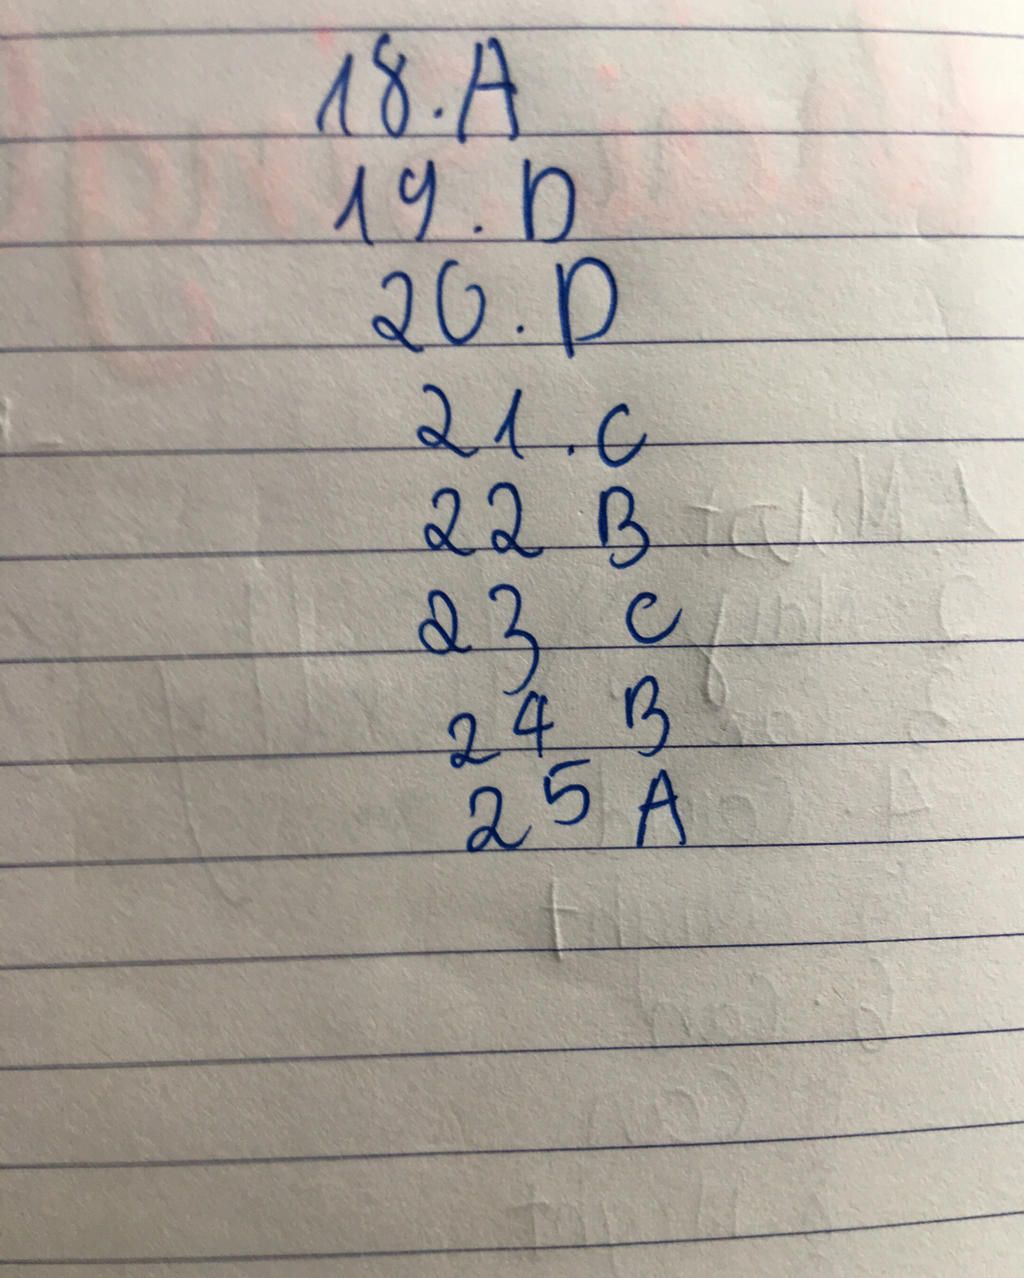 18. A
19. D
20. D
21. C
22 B
23 C
24 B
25 A